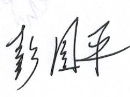 彭国平